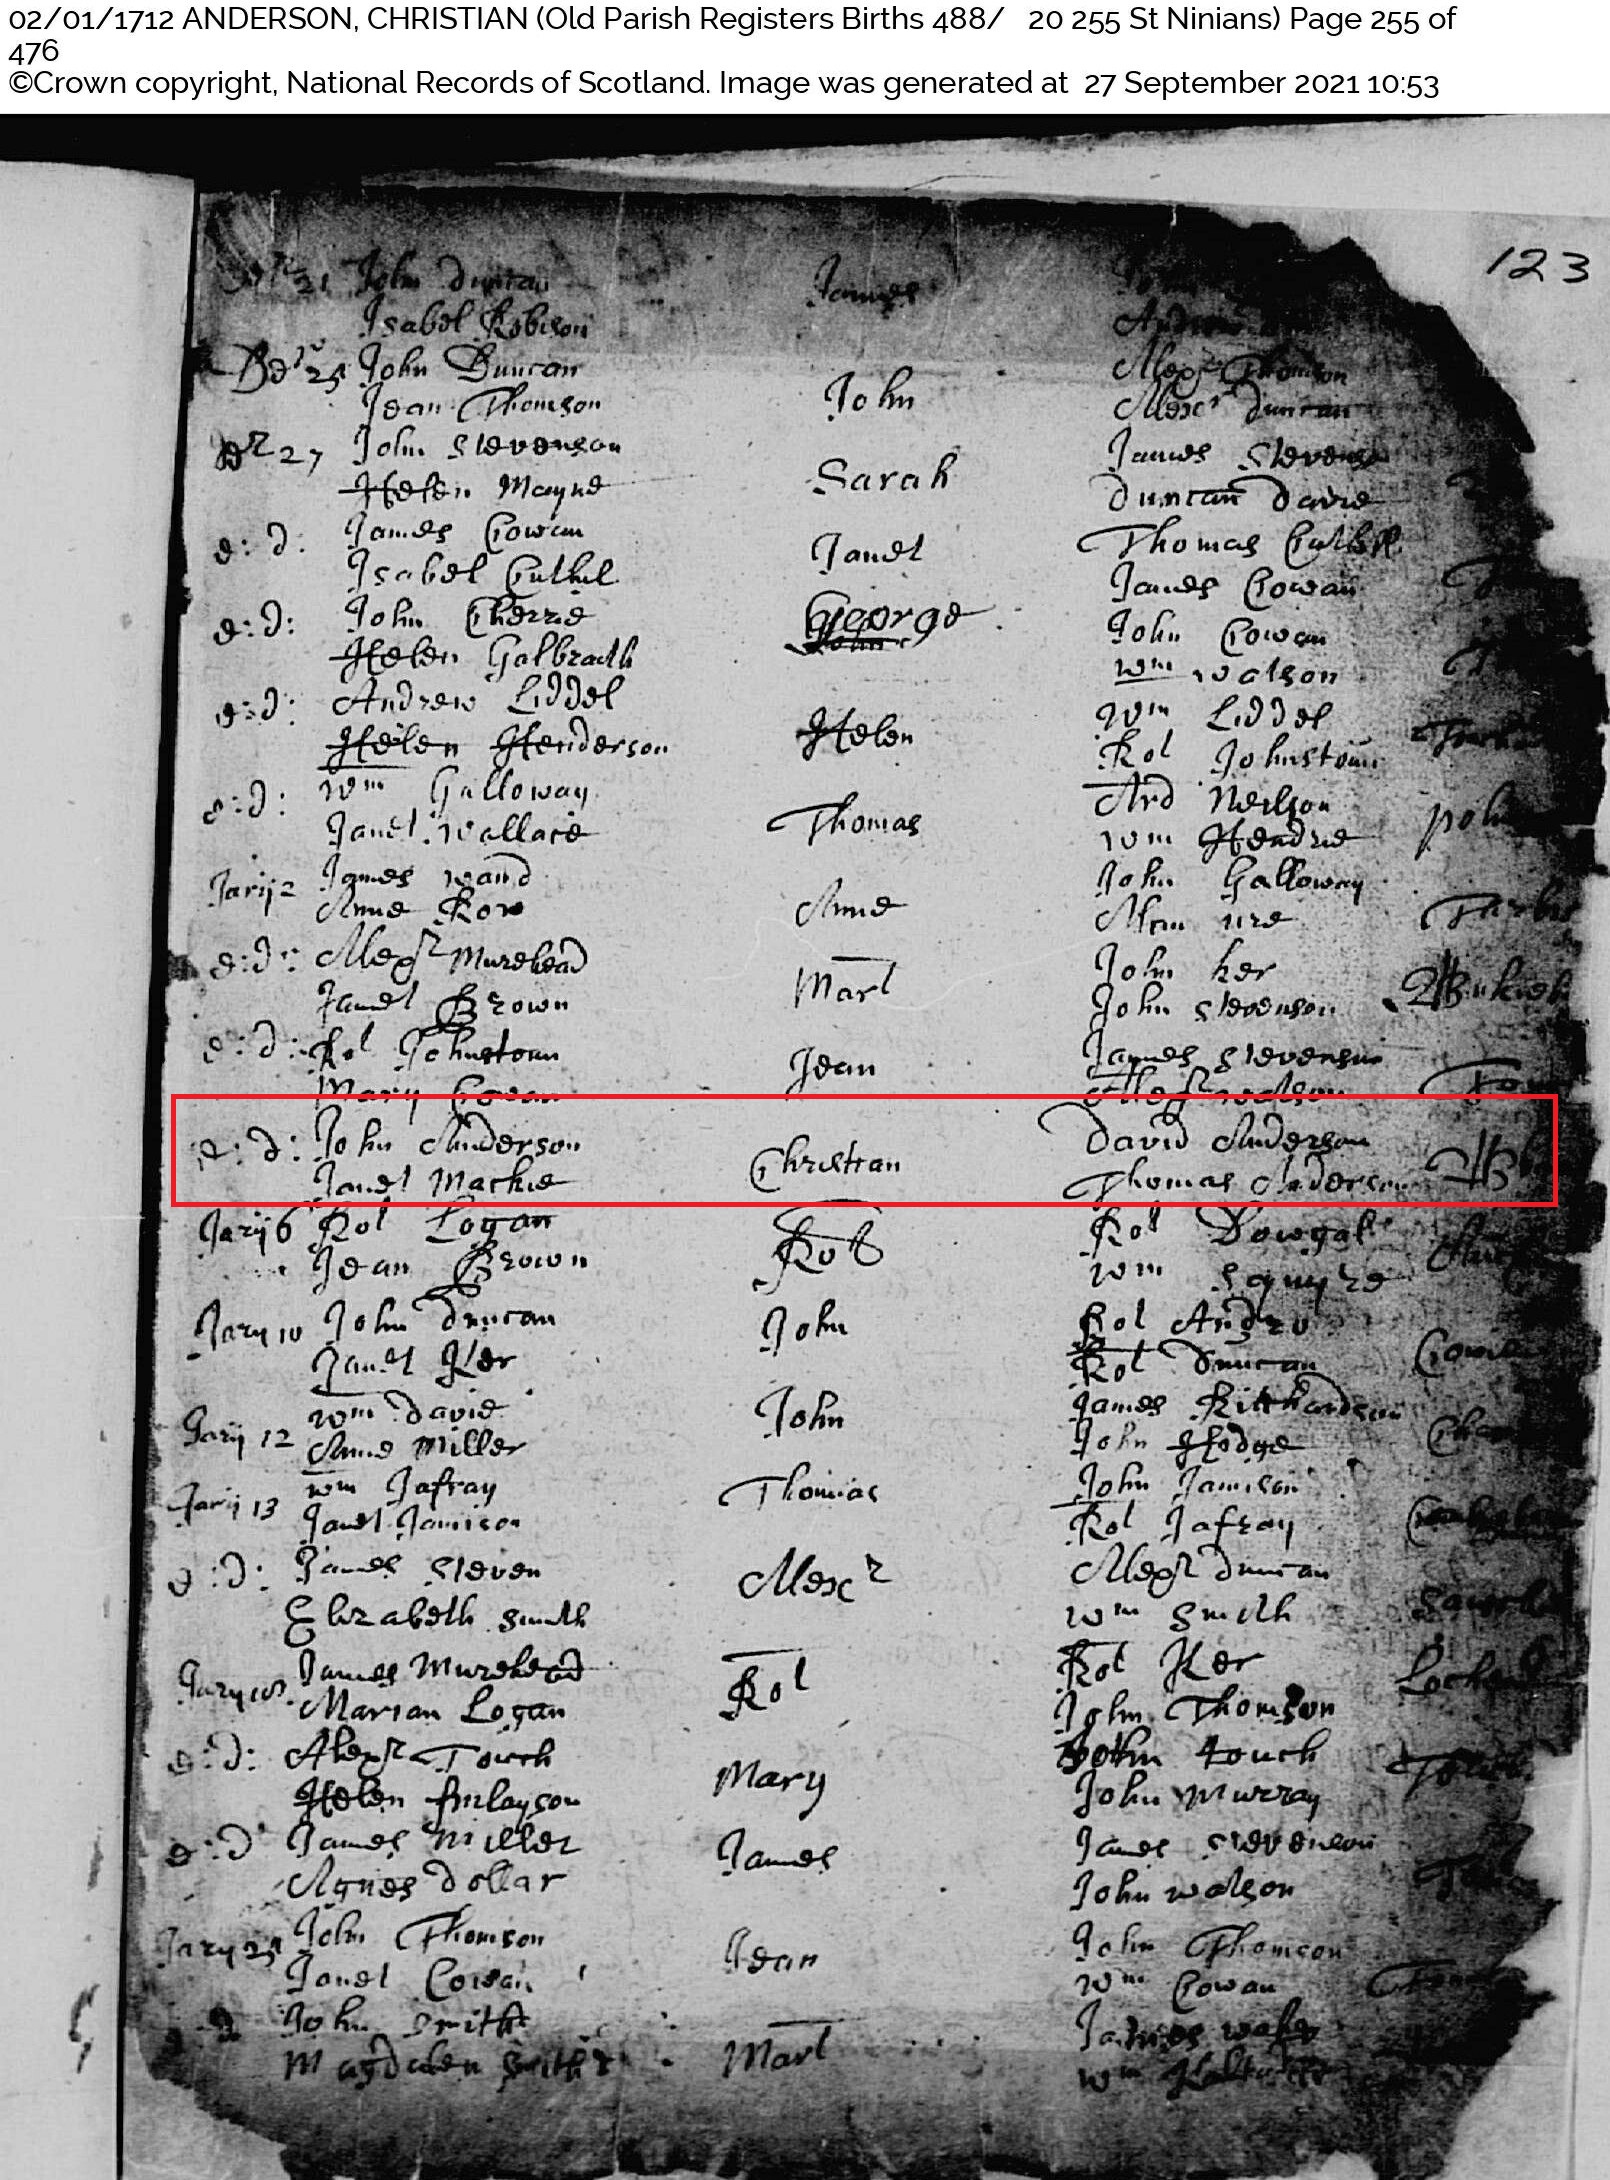 02/01/1712 ANDERSON, CHRISTIAN (Old Parish Registers Births 488/ 20 255 St Ninians) Page 255 of
476
©Crown copyright, National Records of Scotland. Image was generated at 27 September 2021 10:53
123
21 John Duncan James
Isabel Robison Andrew
25 John Duncan Alexr Thomson
Jean Thomson John Alexr Duncan
27 John Stevenson James Stevenson
Helen Mayne Sarah Duncan Davie
e:d: James Cowan Janet Thomas
Isabel Cuthil James Cowan
e:d: John Cherrie George John Cowan
Helen Galbraith John wm watson
e:d: Andrew Liddel wm Liddel
Helen Henderson Helen Rot Johnstoun
e:d: wm Galloway Ard Neilson
Janet wallace Thomas wm Hendrie
Jarij 2 James wand John Galloway
Anne Row Anne
e:d: Alexr Murehead John ker
Janet Brown Mart John Stevenson
e:d: Rot Johnstoun Jean James Stevenson
Mary Cowan
e:d: John Anderson David Anderson
Janet Mackie Christian Thomas Anderson
Jarij 6 Rot Logan Rot Dowgal
Jean Brown Rot wm Squyre
Jary 10 John Duncan John Rot Andro
Janet Ker Rot Duncan
Jarij 12 wm David John James Ritchardson
Anne Miller John Hodge
Jarij 13 wm Jafray Thomas John Jamison
Janet Jamison Rot Jafray
e:d: James Steven Alexr Alexr Duncan
Elizabeth Smith wm Smith
James Murehead Rot Rot Ker
Marian Logan John Thomson
e:d: Alexr Towch John Touch
Helen finlayson Mary John Murray
e:d James Miller James James Stevenson
Agnes Dollar John watson
John Thomson Jean John Thomson
Janet Cowan wm Cowan
John Smith James
Magdalen Mart wm